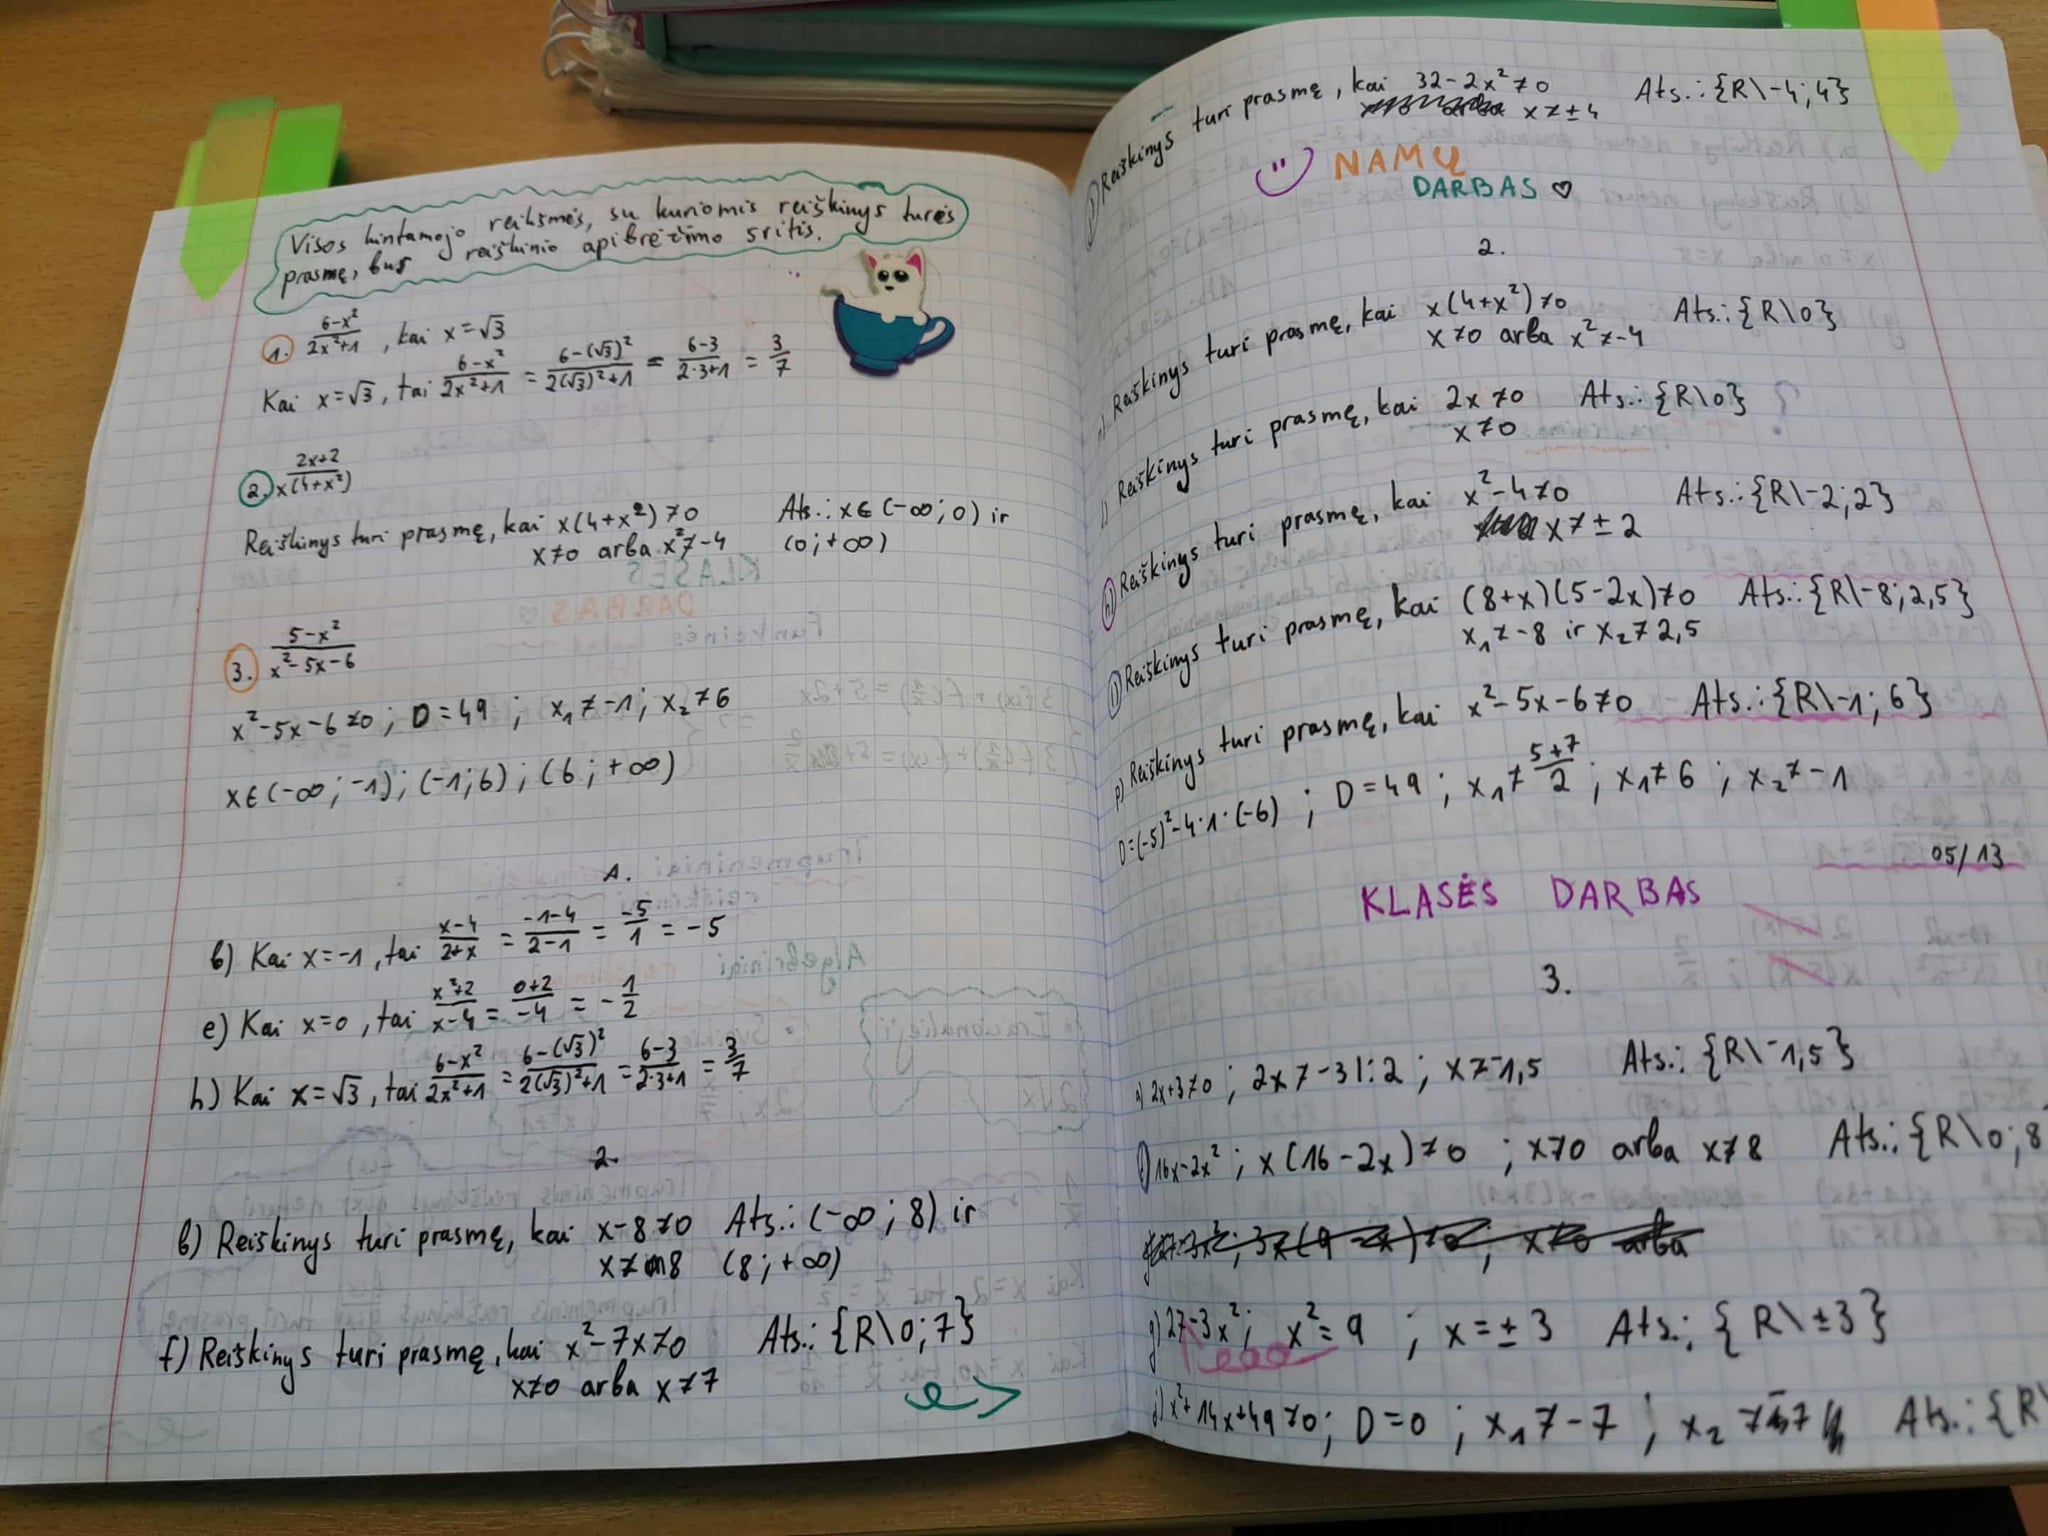 Visos kintamojo reikšmės, su kuriomis reiškinys turės
prasmę, bus reiškinio apibrėžimo sritis.
1. (6-x²)/(2x²+1), kai x=√3
Kai x=√3, tai (6-x²)/(2x²+1) = (6-(√3)²)/(2(√3)²+1) = (6-3)/(2·3+1) = 3/7
2. (2x+2)/(x(4+x²))
Reiškinys turi prasmę, kai x(4+x²)≠0 Ats.: x∈(-∞;0) ir
x≠0 arba x²≠-4 (0;+∞)
3. (5-x²)/(x²-5x-6)
x²-5x-6≠0; D=49; x₁≠-1; x₂≠6
x∈(-∞;-1); (-1;6); (6;+∞)
1.
b) Kai x=-1, tai (x-4)/(2+x) = (-1-4)/(2-1) = -5/1 = -5
e) Kai x=0, tai (x²+2)/(x-4) = (0+2)/-4 = -1/2
h) Kai x=√3, tai (6-x²)/(2x²+1) = (6-(√3)²)/(2(√3)²+1) = (6-3)/(2·3+1) = 3/7
2.
b) Reiškinys turi prasmę, kai x-8≠0 Ats.: (-∞;8) ir
x≠8 (8;+∞)
f) Reiškinys turi prasmę, kai x²-7x≠0 Ats.: {R\0;7}
x≠0 arba x≠7
Reiškinys turi prasmę, kai 32-2x²≠0 Ats.: {R\-4;4}
x≠±4
NAMŲ
DARBAS ♡
2.
Reiškinys turi prasmę, kai x(4+x²)≠0 Ats.: {R\0}
x≠0 arba x²≠-4
Reiškinys turi prasmę, kai 2x≠0 Ats.: {R\0}
x≠0
h) Reiškinys turi prasmę, kai x²-4≠0 Ats.: {R\-2;2}
x≠±2
l) Reiškinys turi prasmę, kai (8+x)(5-2x)≠0 Ats.: {R\-8;2,5}
x₁≠-8 ir x₂≠2,5
p) Reiškinys turi prasmę, kai x²-5x-6≠0 Ats.: {R\-1;6}
D=(-5)²-4·1·(-6); D=49; x₁≠(5+7)/2; x₁≠6; x₂≠-1
05/13
KLASĖS DARBAS
3.
a) 2x+3≠0; 2x≠-3|:2; x≠-1,5 Ats.: {R\-1,5}
16x-2x²; x(16-2x)≠0; x≠0 arba x≠8 Ats.: {R\0;8
g) 27-3x²; x²=9; x=±3 Ats.: {R\±3}
j) x²+14x+49≠0; D=0; x₁≠-7; x₂≠-7 Ats.: {R\